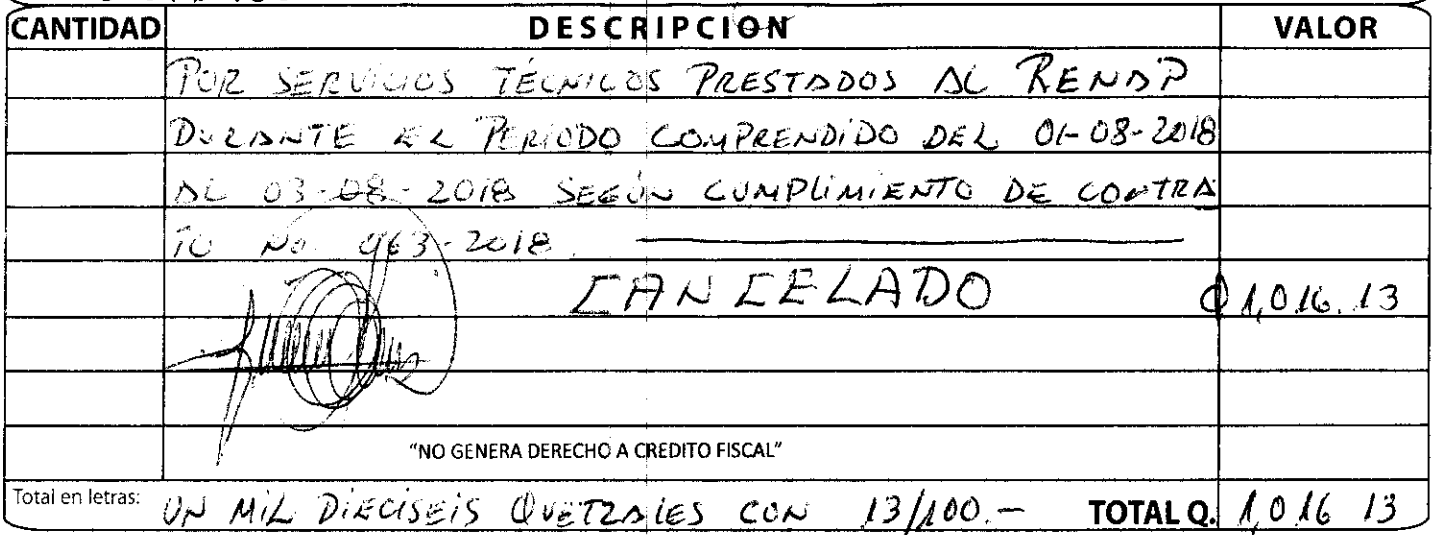 CANTIDAD DESCRIPCION VALOR
POR SERVICIOS TÉCNICOS PRESTADOS AL RENAP
DURANTE EL PERIODO COMPRENDIDO DEL 01-08-2018
AL 03-08-2018 SEGÚN CUMPLIMIENTO DE CONTRA
TO No. 963-2018.
CANCELADO Q 1,016.13
"NO GENERA DERECHO A CREDITO FISCAL"
Total en letras: UN MIL DIECISEIS QUETZALES CON 13/100.- TOTAL Q. 1,016 13